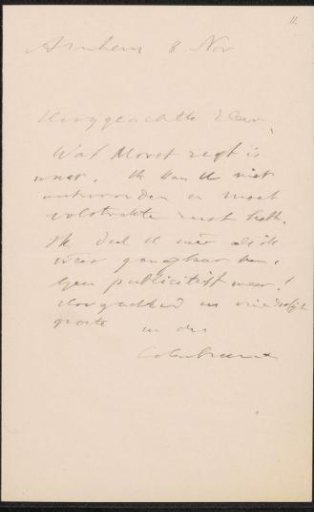 11.
Arnhem 8 Nov
Hooggeachte Heer,
Wat Moret zegt is
waar. Ik kan U niet
antwoorden en moet
volstrekte rust
Ik deel U meê als ik
weêr gangbaar ben.
Geen publiciteit meer!
Hoogachtend en
groete